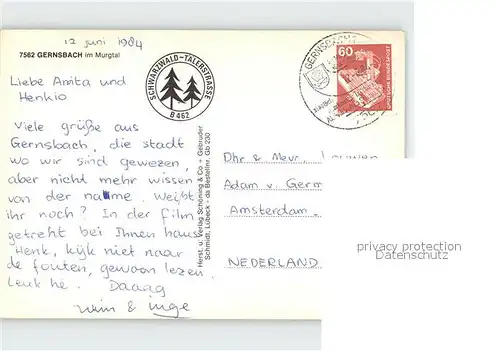 12 juni 1984
7562 GERNSBACH im Murgtal
SCHWARZWALD-TÄLERSTRASSE
B 462
GERNSBACH
60
DEUTSCHE BUNDESPOST
Liebe Anita und
Henkio
Viele grüße aus
Gernsbach, die stadt
wo wir sind gewezen,
aber nicht mehr wissen
von der name. Weißt
ihr noch? In der film
getreht bei Ihnen haus
Henk, kijk niet naar
de fouten, gewoon lezen.
Leuk hè. Daaag
Wim & Inge
Herst. u. Verlag Schöning & Co + Gebrüder
Schmidt, Lübeck - da Bestellnr. Gb 230
Dhr & Mevr.
Adam v. Germ
Amsterdam
NEDERLAND
privacy protection
Datenschutz